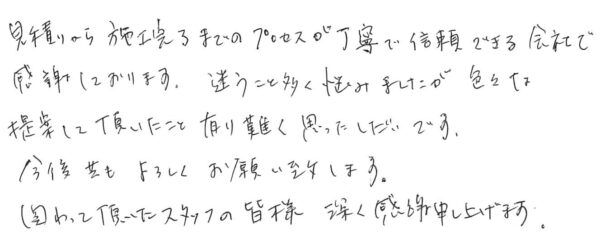 見積りから施工完了までのプロセスが丁寧で信頼できる会社で
感謝しております。迷うこと多く悩みましたが色々な
提案して頂いたこと有り難く思ったしだいです。
今後共もよろしくお願い致します。
関わって頂いたスタッフの皆様 深く感謝申し上げます。